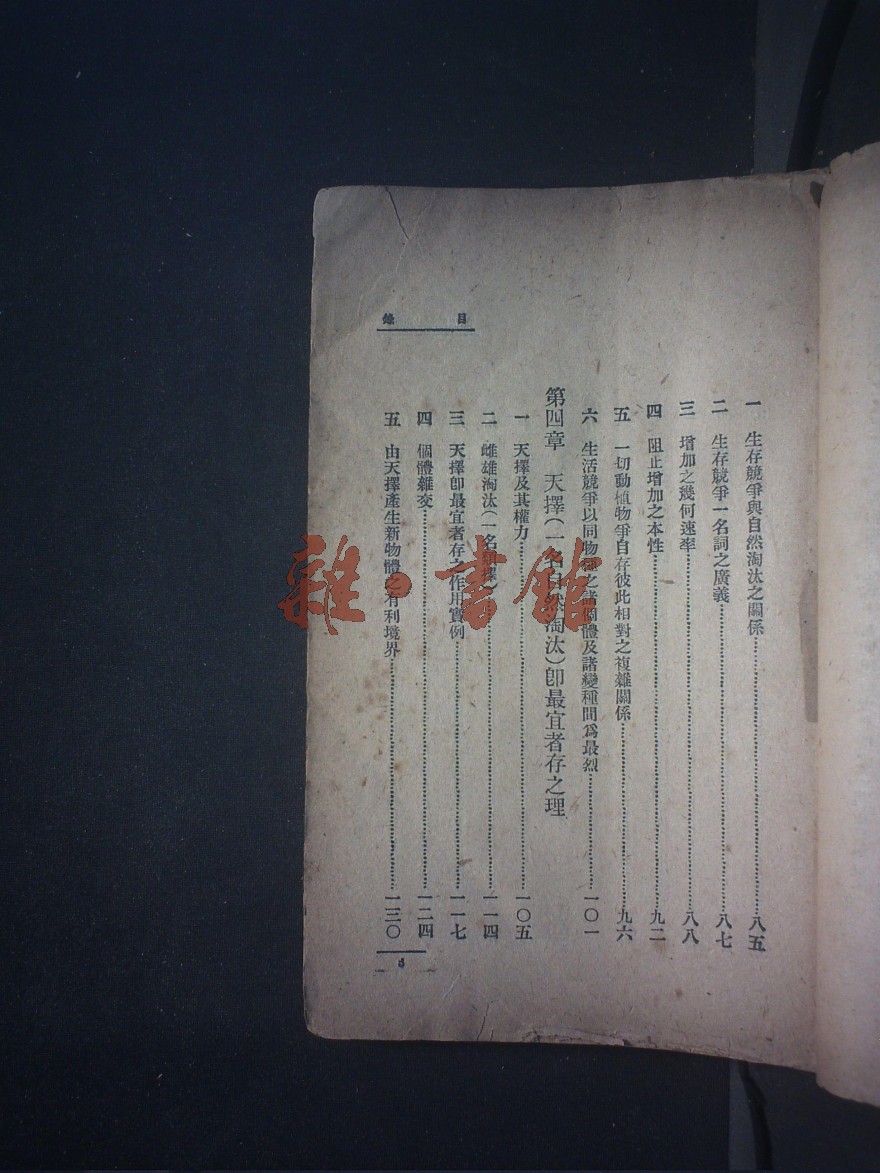 目錄
一 生存競爭與自然淘汰之關係……八五
二 生存競爭一名詞之廣義……八七
三 增加之幾何速率……八八
四 阻止增加之本性……九二
五 一切動植物爭自存彼此相對之複雜關係……九六
六 生活競爭以同物種之諸個體及諸變種間爲最烈……一〇一
第四章 天擇(一名自然淘汰)卽最宜者存之理
一 天擇及其權力……一〇五
二 雌雄淘汰(一名類擇)……一一四
三 天擇卽最宜者存之作用實例……一一七
四 個體雜交……一二四
五 由天擇產生新物體之有利境界……一三〇
雜·書館